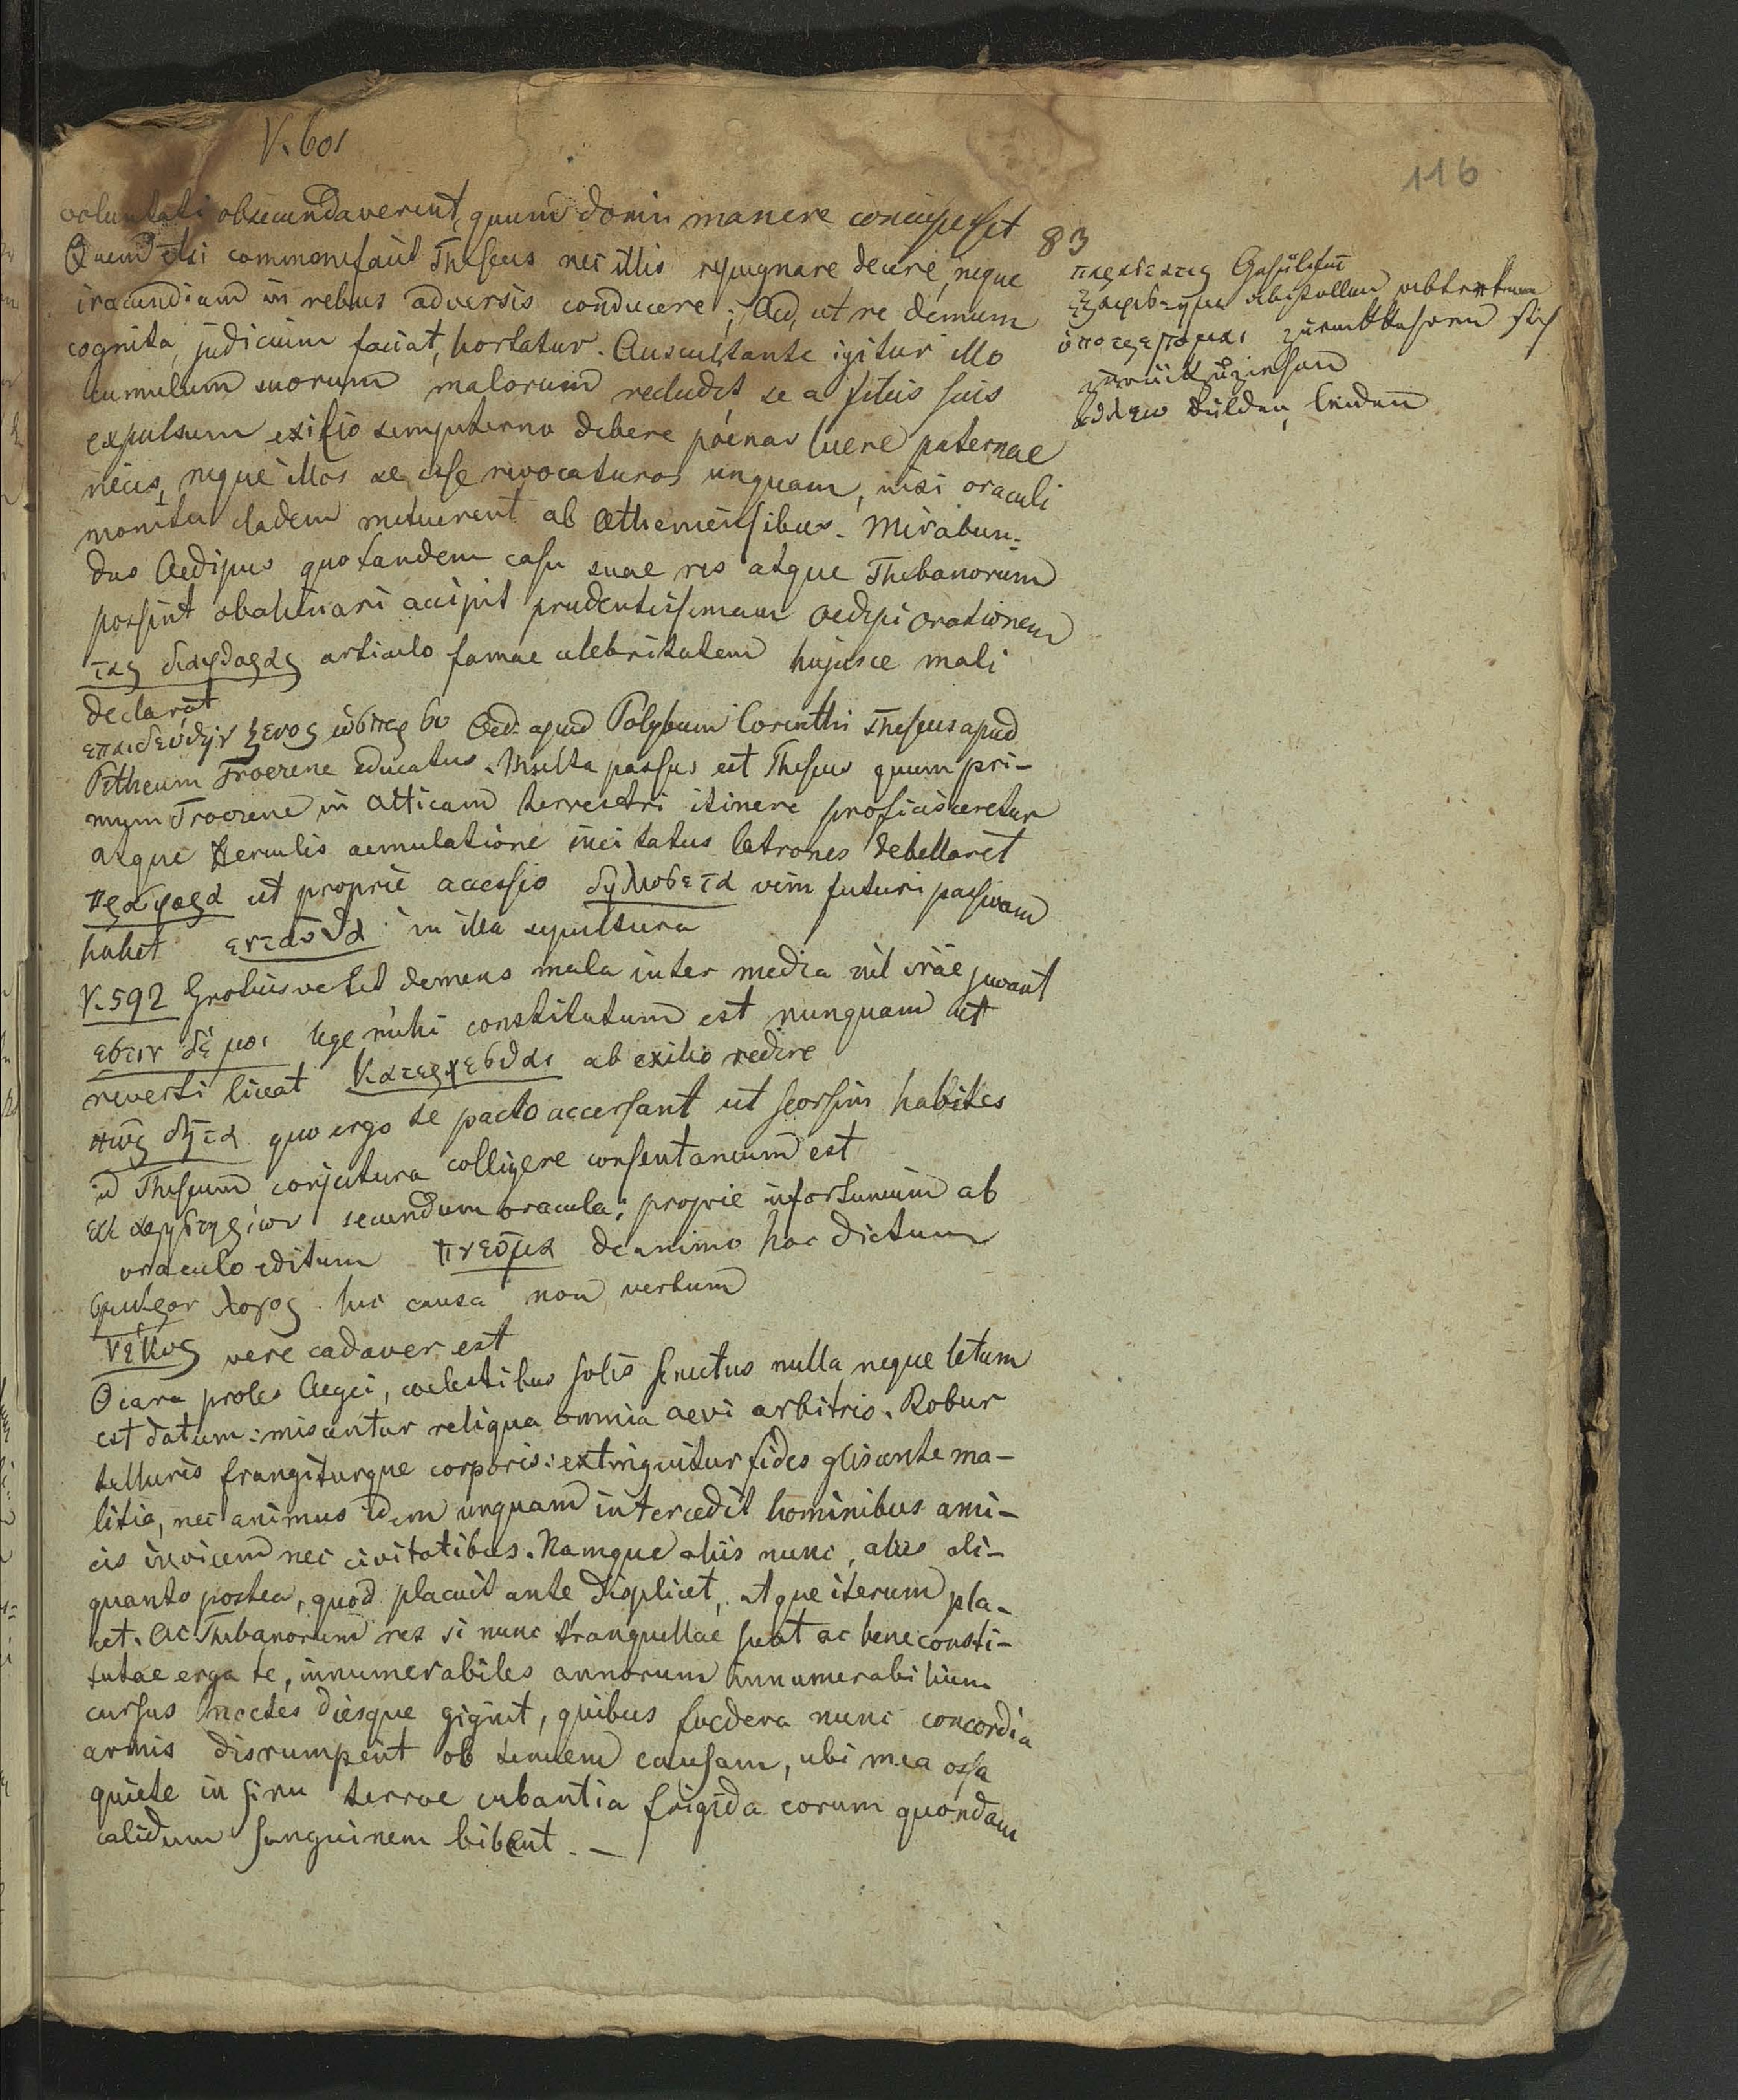 V. 601
116
voluntati obsecundaverint, quum domi manere concupisset
83
Quem etsi commonefacit Theseus nec illis repugnare decere, neque
iracundiam in rebus adversis conducere; Aed, ut re demum
cognita, judicium faciat, hortatur. Auscultante igitur illo
cumulum suorum malorum recludit se a filiis suis
expulsum exilio sempiterno debere poenas luere paternae
necis, neque illos se esse revocaturos unquam, nisi oraculi
monitu cladem metuerent ab Atheniensibus. Mirabun=
dus Aedipus quo tandem casu suae res atque Thebanorum
possint abalienari accipit prudentissimam Oedipi orationem
τας διαφθορας articulo famae celebritatem hujusce mali
declarat
επαιδευθην ξενος ωσπερ συ Oed. apud Polybum Corinthi Theseus apud
Pittheum Troezene educatus. Multa passus est Theseus quum pri-
mum Troezene in Atticam terrestri itinere proficisceretur
atque Herculis aemulatione incitatus latrones debellaret
προσφορα ut proprie accessio δηλωσεται vim futuri passivam
habet ενταυθα in illa sepultura
V. 592 Grotius vertit demens mala inter media nil irae juvant
εστιν δε μοι lege mihi constitutum est nunquam ut
reverti liceat κατερχεσθαι ab exilio redire
πως δητα quo ergo te pacto accersant ut seorsim habites
id Theseum conjectura colligere consentaneum est
εκ χρηστηριων secundum oracula; proprie infortunium ab
oraculo editum πνευμα de animo hoc dictum
σμικρον λογος hic causa non verbum
νεκυς vere cadaver est
O cara proles Aegei, coelestibus solis senectus nulla neque letum
est datum: miscentur reliqua omnia aevi arbitrio. Robur
telluris frangiturque corporis: extinguitur fides gliscente ma-
litia, nec animus idem unquam intercedit hominibus ami-
cis invicem nec civitatibus. Namque aliis nunc, aliis ali-
quanto postea, quod placuit ante displicet, atque iterum pla-
cet. Ac Thebanorum res si nunc tranquillae sunt ac bene consti-
tutae erga te, innumerabiles annorum innumerabilium
cursus noctes diesque gignit, quibus foedera nunc concordia
armis disrumpent ob tenuem causam, ubi mea ossa
quiete in sinu terrae cubantia frigida eorum quondam
calidum sanguinem bibent. —
zurückziehen
dulden, leiden